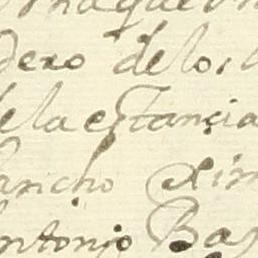 dero de los
de la estançia
ancho Xim
Antonio Ba